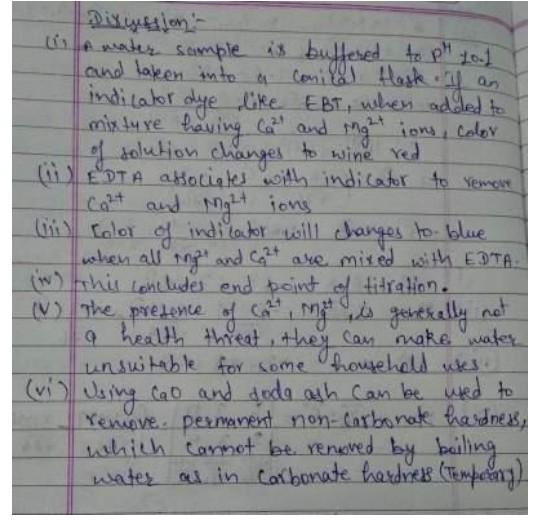 Discussion:-
(i) A water sample is buffered to pH 10.1
and taken into a conical flask. If an
indicator dye like EBT, when added to
mixture having Ca2+ and Mg2+ ions, color
of solution changes to wine red
(ii) EDTA associates with indicator to remove
Ca2+ and Mg2+ ions
(iii) Color of indicator will changes to blue
when all Mg2+ and Ca2+ are mixed with EDTA.
(iv) This concludes end point of titration.
(v) The presence of Ca2+, Mg2+, is generally not
a health threat, they can make water
unsuitable for some household uses.
(vi) Using CaO and soda ash can be used to
remove permanent non-carbonate hardness,
which cannot be removed by boiling
water as in carbonate hardness (Temporary)